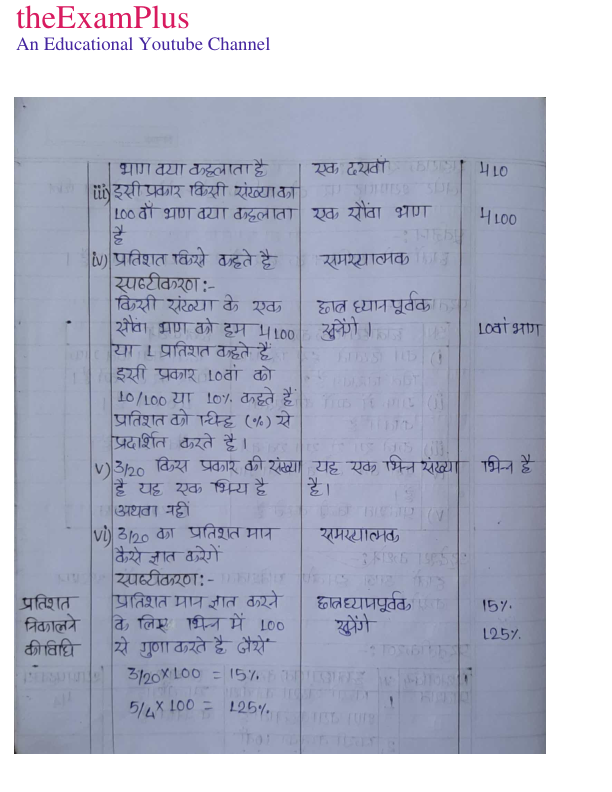 theExamPlus
An Educational Youtube Channel
भाग क्या कहलाता है
एक दसवाँ
1/10
iii) इसी प्रकार किसी संख्या का
100 वाँ भाग क्या कहलाता
है
एक सौंवा भाग
1/100
iv) प्रतिशत किसे कहते है
समस्यात्मक
स्पष्टीकरण :-
किसी संख्या के एक
सौंवा भाग को हम 1/100
या 1 प्रतिशत कहते हैं
इसी प्रकार 10वां को
10/100 या 10% कहते हैं
प्रतिशत को चिन्ह (%) से
प्रदर्शित करते है।
छात्र ध्यानपूर्वक
सुनेंगे।
10वां भाग
v) 3/20 किस प्रकार की संख्या
है यह एक भिन्य है
अथवा नहीं
यह एक भिन्न संख्या
है।
भिन्न है
vi) 3/20 का प्रतिशत मान
कैसे ज्ञात करेगें
समस्यात्मक
स्पष्टीकरण :-
प्रतिशत
निकालने
की विधि
प्रतिशत मान ज्ञात करने
के लिए भिन्न में 100
से गुणा करते है जैसे
3/20 × 100 = 15%
5/4 × 100 = 125%
छात्र ध्यानपूर्वक
सुनेंगे
15%
125%